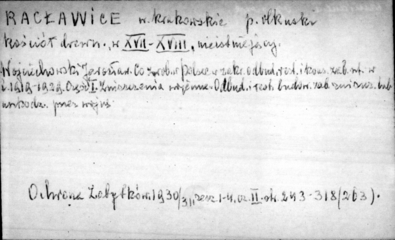 RACŁAWICE w. krakowskie p. olkuski
kościół drewn., w XVII-XVIII, nieistniejący.
Wojciechowski Jarosław. Co zrob. w Polsce w zakr. odbud. rest. i kons. zab. szt. w
l. 1919-1929. Część I. Zniszczenia wojenne. Odbud. i rest. budow. zab. zniszcz. lub
uszkodz. przez wojnę.
Ochrona Zabytków. 1930/31, zesz. 1-4, cz. II. str. 243-318 (263).